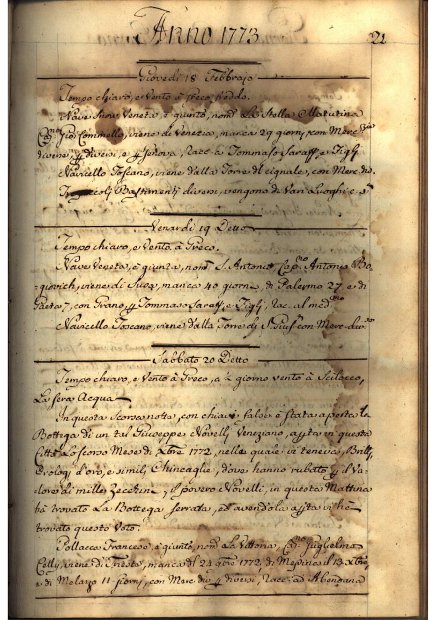 Anno 1773
21
Giovedi 18 Febbrajo
Tempo chiaro, e vento à Greco, freddo.
Nave Snow Veneta, è giunto, nom.ta La Stella Matutina
Cap.no viene di Venezia, manca 29 giorni, con Merc.zie
diverse, p. diversi, e p. Genova, Racc. a Tommaso e Figlj
Navicello Toscano, viene dalla Torre del con Merc. di
Bastimenti diversi, vengono da Vari Luoghi e
Venardi 19 Detto
Tempo chiaro, e vento à Greco.
Nave Veneta, è giunta, nom.ta S. Antonio, Cap.no Antonio
viene di manca 40 giorni, di Palermo 27 e di
7, con Grano, p. Tommaso e Figlj, Rac. al med.mo
Navicello Toscano, viene dalla Torre di S. con Merc.
Sabbato 20 Detto
Tempo chiaro, e vento à Greco, a ½ giorno vento à Scilocco,
La sera Acqua
In questa scorsa notte, con chiave falsa è stata aperta la
Bottega di un tal Giuseppe Novelli Veneziano, in questa
Città Lo scorso Mese di Xbre 1772, nelle quale vi teneva, Brill.
Orologj d'oro, e simili Chincaglie, dove hanno rubatto p. il va-
lore di mille Zecchini; il povero Novelli, in questa Mattina
hà trovato La Bottega serrata, ed avendola aperta vi hà
trovato questo Voto.
Pollacca Francese, è giunto, nom.ta La Vittoria, Cap.no Guglielmo
viene di Trieste, manca di 24 9bre 1772, di Messina il 13 Xbre
e di Melazzo 11 giorni, con Merc. div. p. diversi, Racc. ad